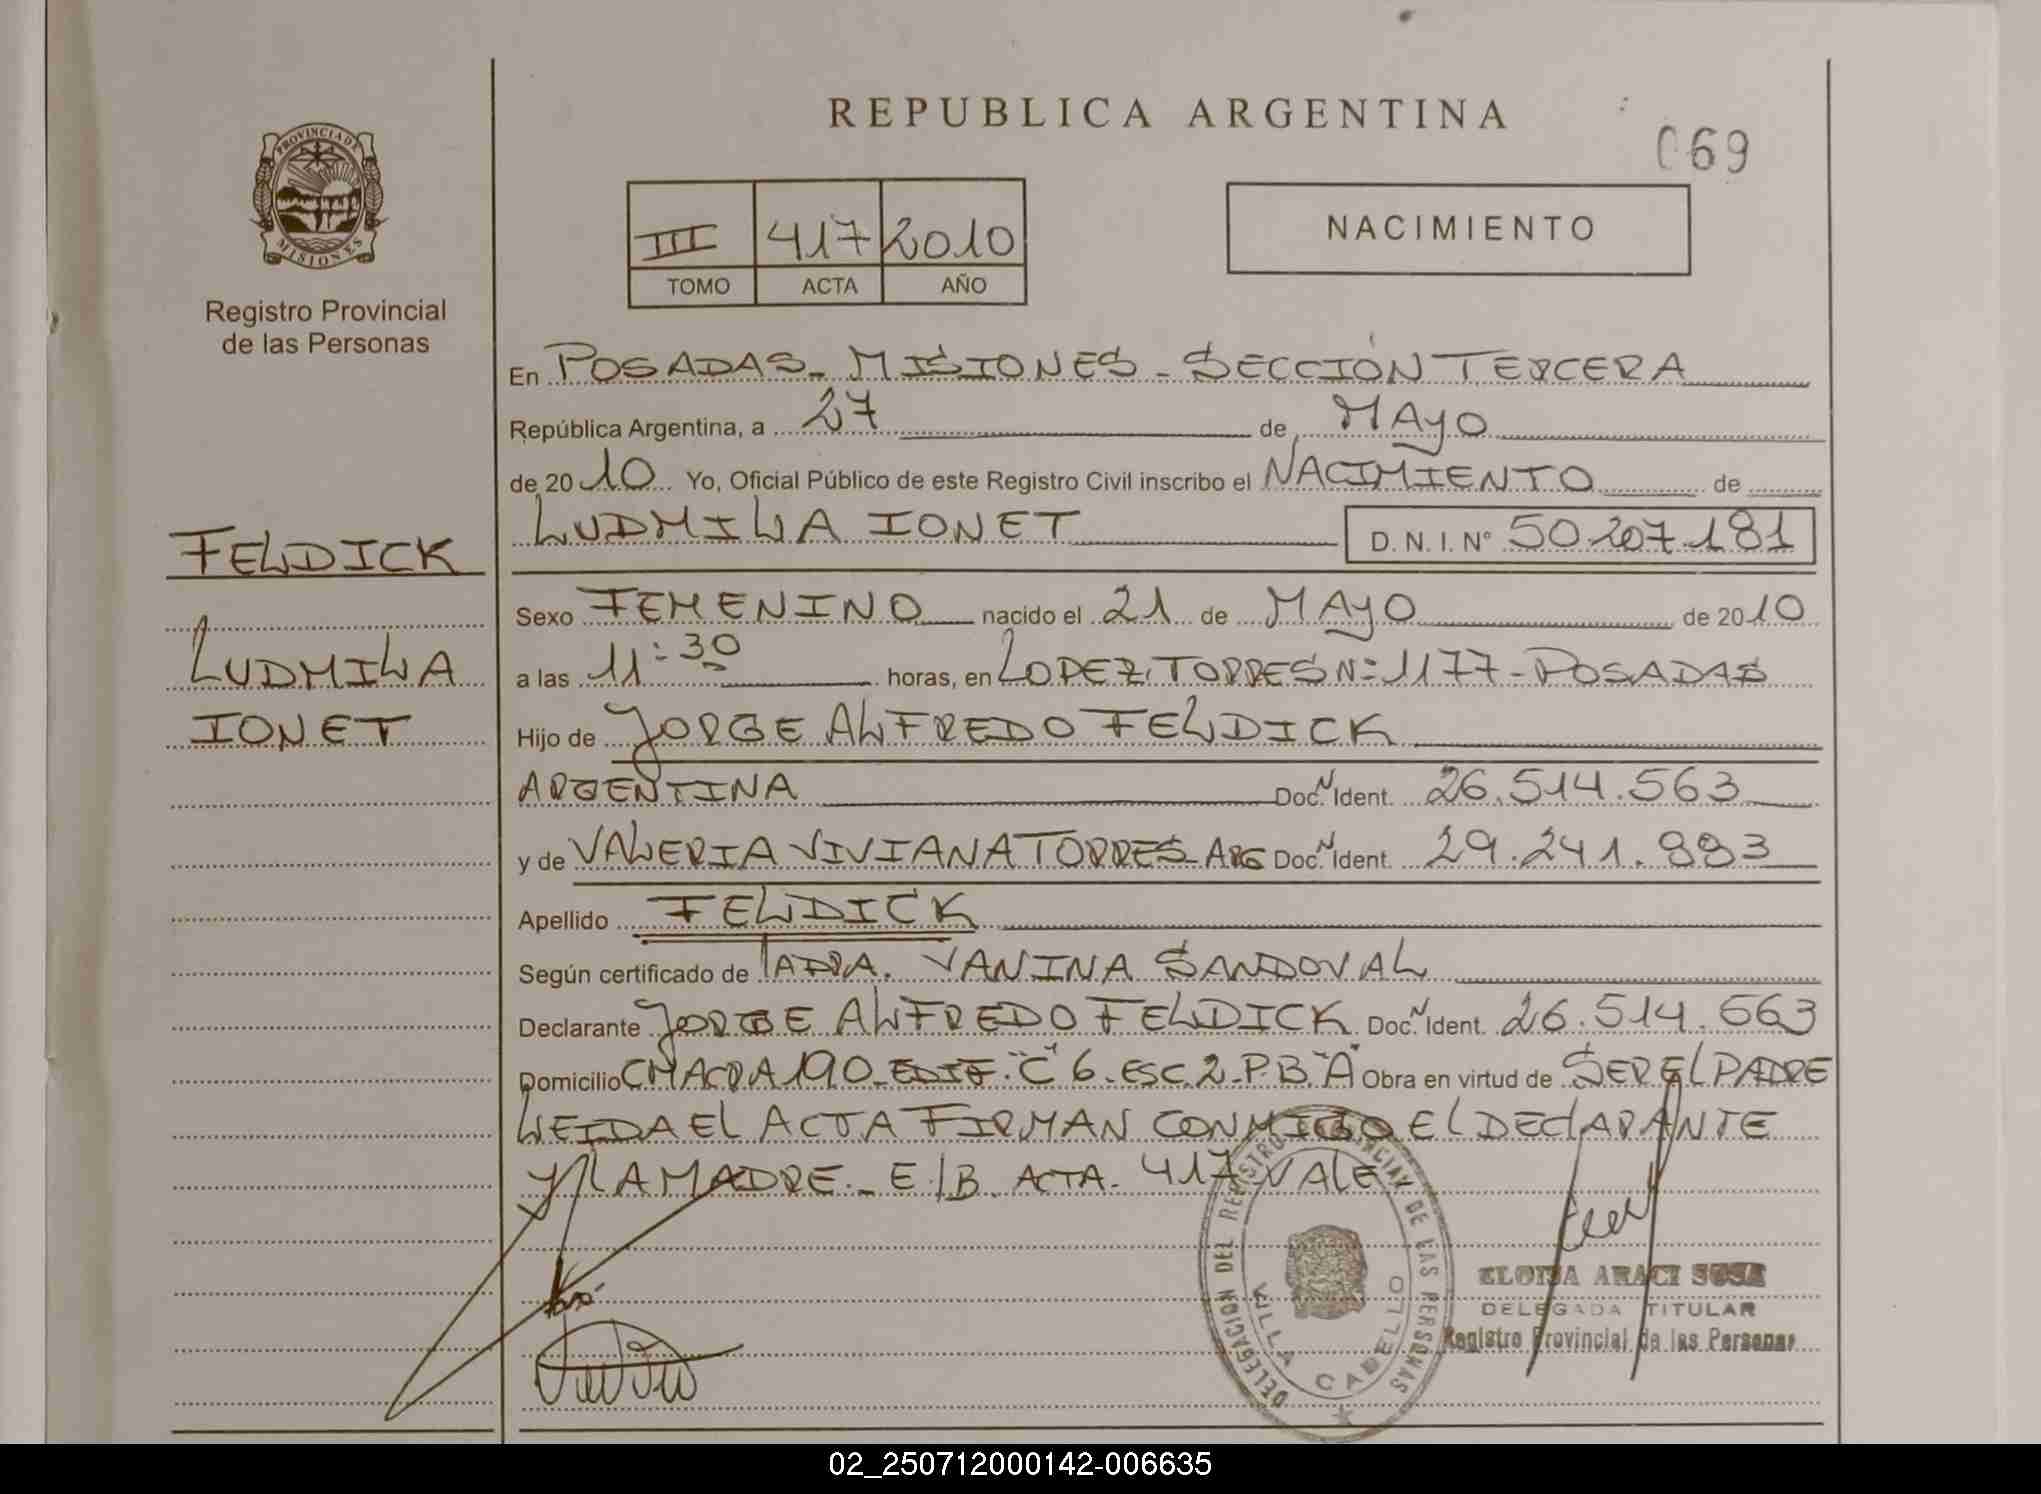 REPUBLICA ARGENTINA
069
PROVINCIA DE MISIONES
Registro Provincial
de las Personas
III 417 2010
TOMO ACTA AÑO
NACIMIENTO
En POSADAS - MISIONES - SECCIÓN TERCERA
República Argentina, a 27 de MAYO
de 2010 Yo, Oficial Público de este Registro Civil inscribo el NACIMIENTO de
LUDMILA IONET D.N.I. N° 50.207.181
FELDICK
LUDMILA
IONET
Sexo FEMENINO nacido el 21 de MAYO de 2010
a las 11:30 horas, en LOPEZ TORRES Nº 1177 - POSADAS
Hijo de JORGE ALFREDO FELDICK
ARGENTINA Doc. N Ident. 26.514.563
y de VALERIA VIVIANA TORRES - ARG Doc. N Ident. 29.241.
Apellido FELDICK
Según certificado de VANINA SANDOVAL
Declarante JORGE ALFREDO FELDICK Doc. N Ident. 26.514.563
Domicilio CHACRA 190 - EDIF. "C" 6 - ESC. 2 - P.B. "A" Obra en virtud de SER EL PADRE
LEIDA EL ACTA FIRMAN CONMIGO EL DECLARANTE
Y LA MADRE. - E/B. ACTA. 417 VALE
DELEGACION DEL REGISTRO PROVINCIAL DE LAS PERSONAS
VILLA CABELLO
ELOISA ARACI SOSA
DELEGADA TITULAR
Registro Provincial de las Personas
02_250712000142-006635